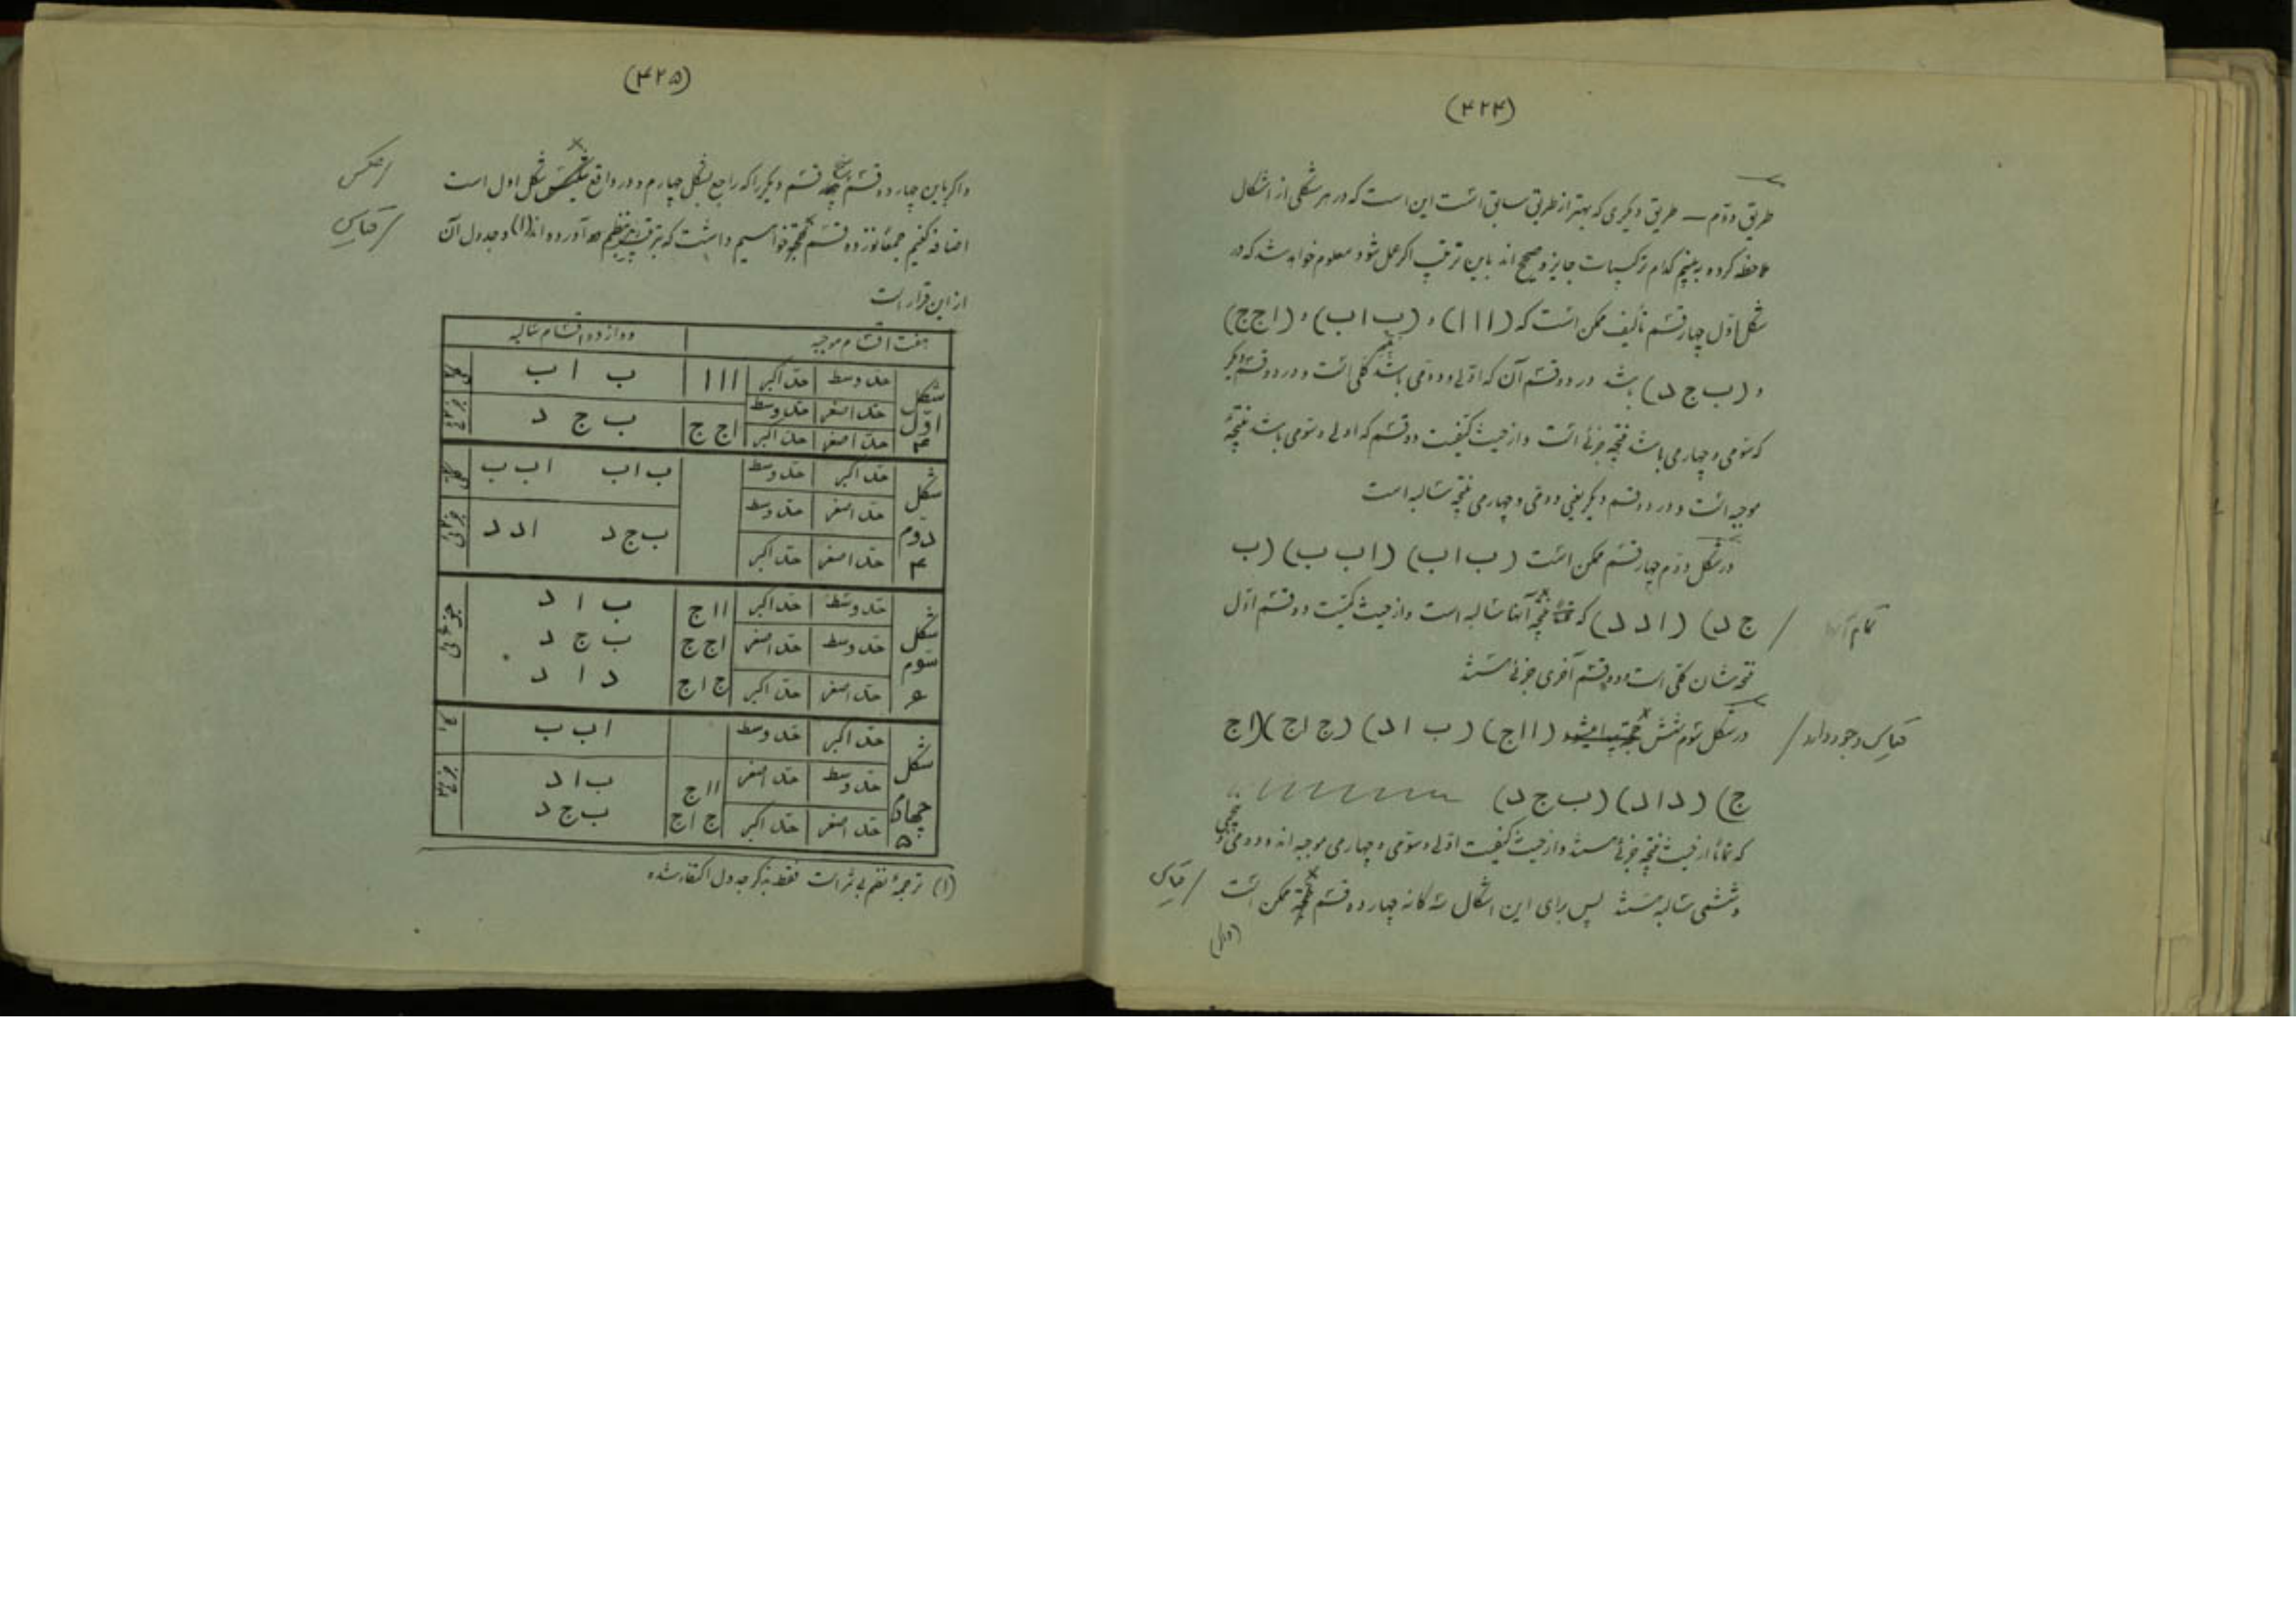 (۴۲۴)
طریق دوّم — طریق دیگری که بهتر از طریق سابق است این است که در هر شکلی از اشکال
ملاحظه کرده ببینیم کدام ترکیبات جایز و صحیح اند باین ترتیب اگر عمل شود معلوم خواهد شد که در
شکل اوّل چهار قسم تألیف ممکن است که (ا ا ا) و (ب ا ب) و (ا ج ج)
و (ب ج د) باشد در دو قسم آن که اوّلی و دوّمی باشد نتیجه کلی است و در دو قسم دیگر
که سوّمی و چهارمی باشد نتیجه جزئی است و از حیث کیفیت دو قسم که اولی و سوّمی باشد نتیجه
موجبه است و در دو قسم دیگر یعنی دوّمی و چهارمی نتیجه سالبه است
در شکل دوّم چهار قسم ممکن است (ب ا ب) (ا ب ب) (ب
ج د) (ا د د) که نتیجه آنها سالبه است و از حیث کمیّت دو قسم اوّل / تمام
نتیجه شان کلّی است و دو قسم آخری جزئی هستند
در شکل سوّم شش (ا ا ج) (ب ا د) (ج ا ج) (ا ج / قیاس وجود دارد
ج) (د ا د) (ب ج د)
که تماماً از حیث نتیجه جزئی هستند و از حیث کیفیت اوّلی و سوّمی و چهارمی موجبه اند و دوّمی و پنجمی
و ششمی سالبه هستند پس برای این اشکال سه گانه چهارده قسم ممکن است / قیاس
(واگر)
(۴۲۵)
واگر باین چهارده قسم پنج قسم دیگر را که راجع بشکل چهارم و در واقع شکل اول است / عکس
اضافه کنیم جمعاً نوزده قسم خواهیم داشت که بترتیب بنظم آورده اند (۱) و جدول آن / قیاس
از این قرار است
هفت اقسام موجبه | دوازده اقسام سالبه
شکل اوّل ۴ | حد وسط | حد اکبر | ا ا ا | ب ا ب | کلی
حد اصغر | حد وسط | ا ج ج | ب ج د | جزئی
حد اصغر | حد اکبر
شکل دوّم ۴ | حد اکبر | حد وسط | ب ا ب | ا ب ب | کلی
حد اصغر | حد وسط | ب ج د | ا د د | جزئی
حد اصغر | حد اکبر
شکل سوم ۶ | حد وسط | حد اکبر | ا ا ج | ب ا د | جزئی
حد وسط | حد اصغر | ا ج ج | ب ج د
حد اصغر | حد اکبر | ج ا ج | د ا د
شکل چهارم ۵ | حد اکبر | حد وسط | ا ب ب
حد وسط | حد اصغر | ا ا ج | ب ا د | جزئی
حد اصغر | حد اکبر | ج ا ج | ب ج د
(۱) ترجمهٔ نظم بی ثمر است فقط بذکر جدول اکتفا شده